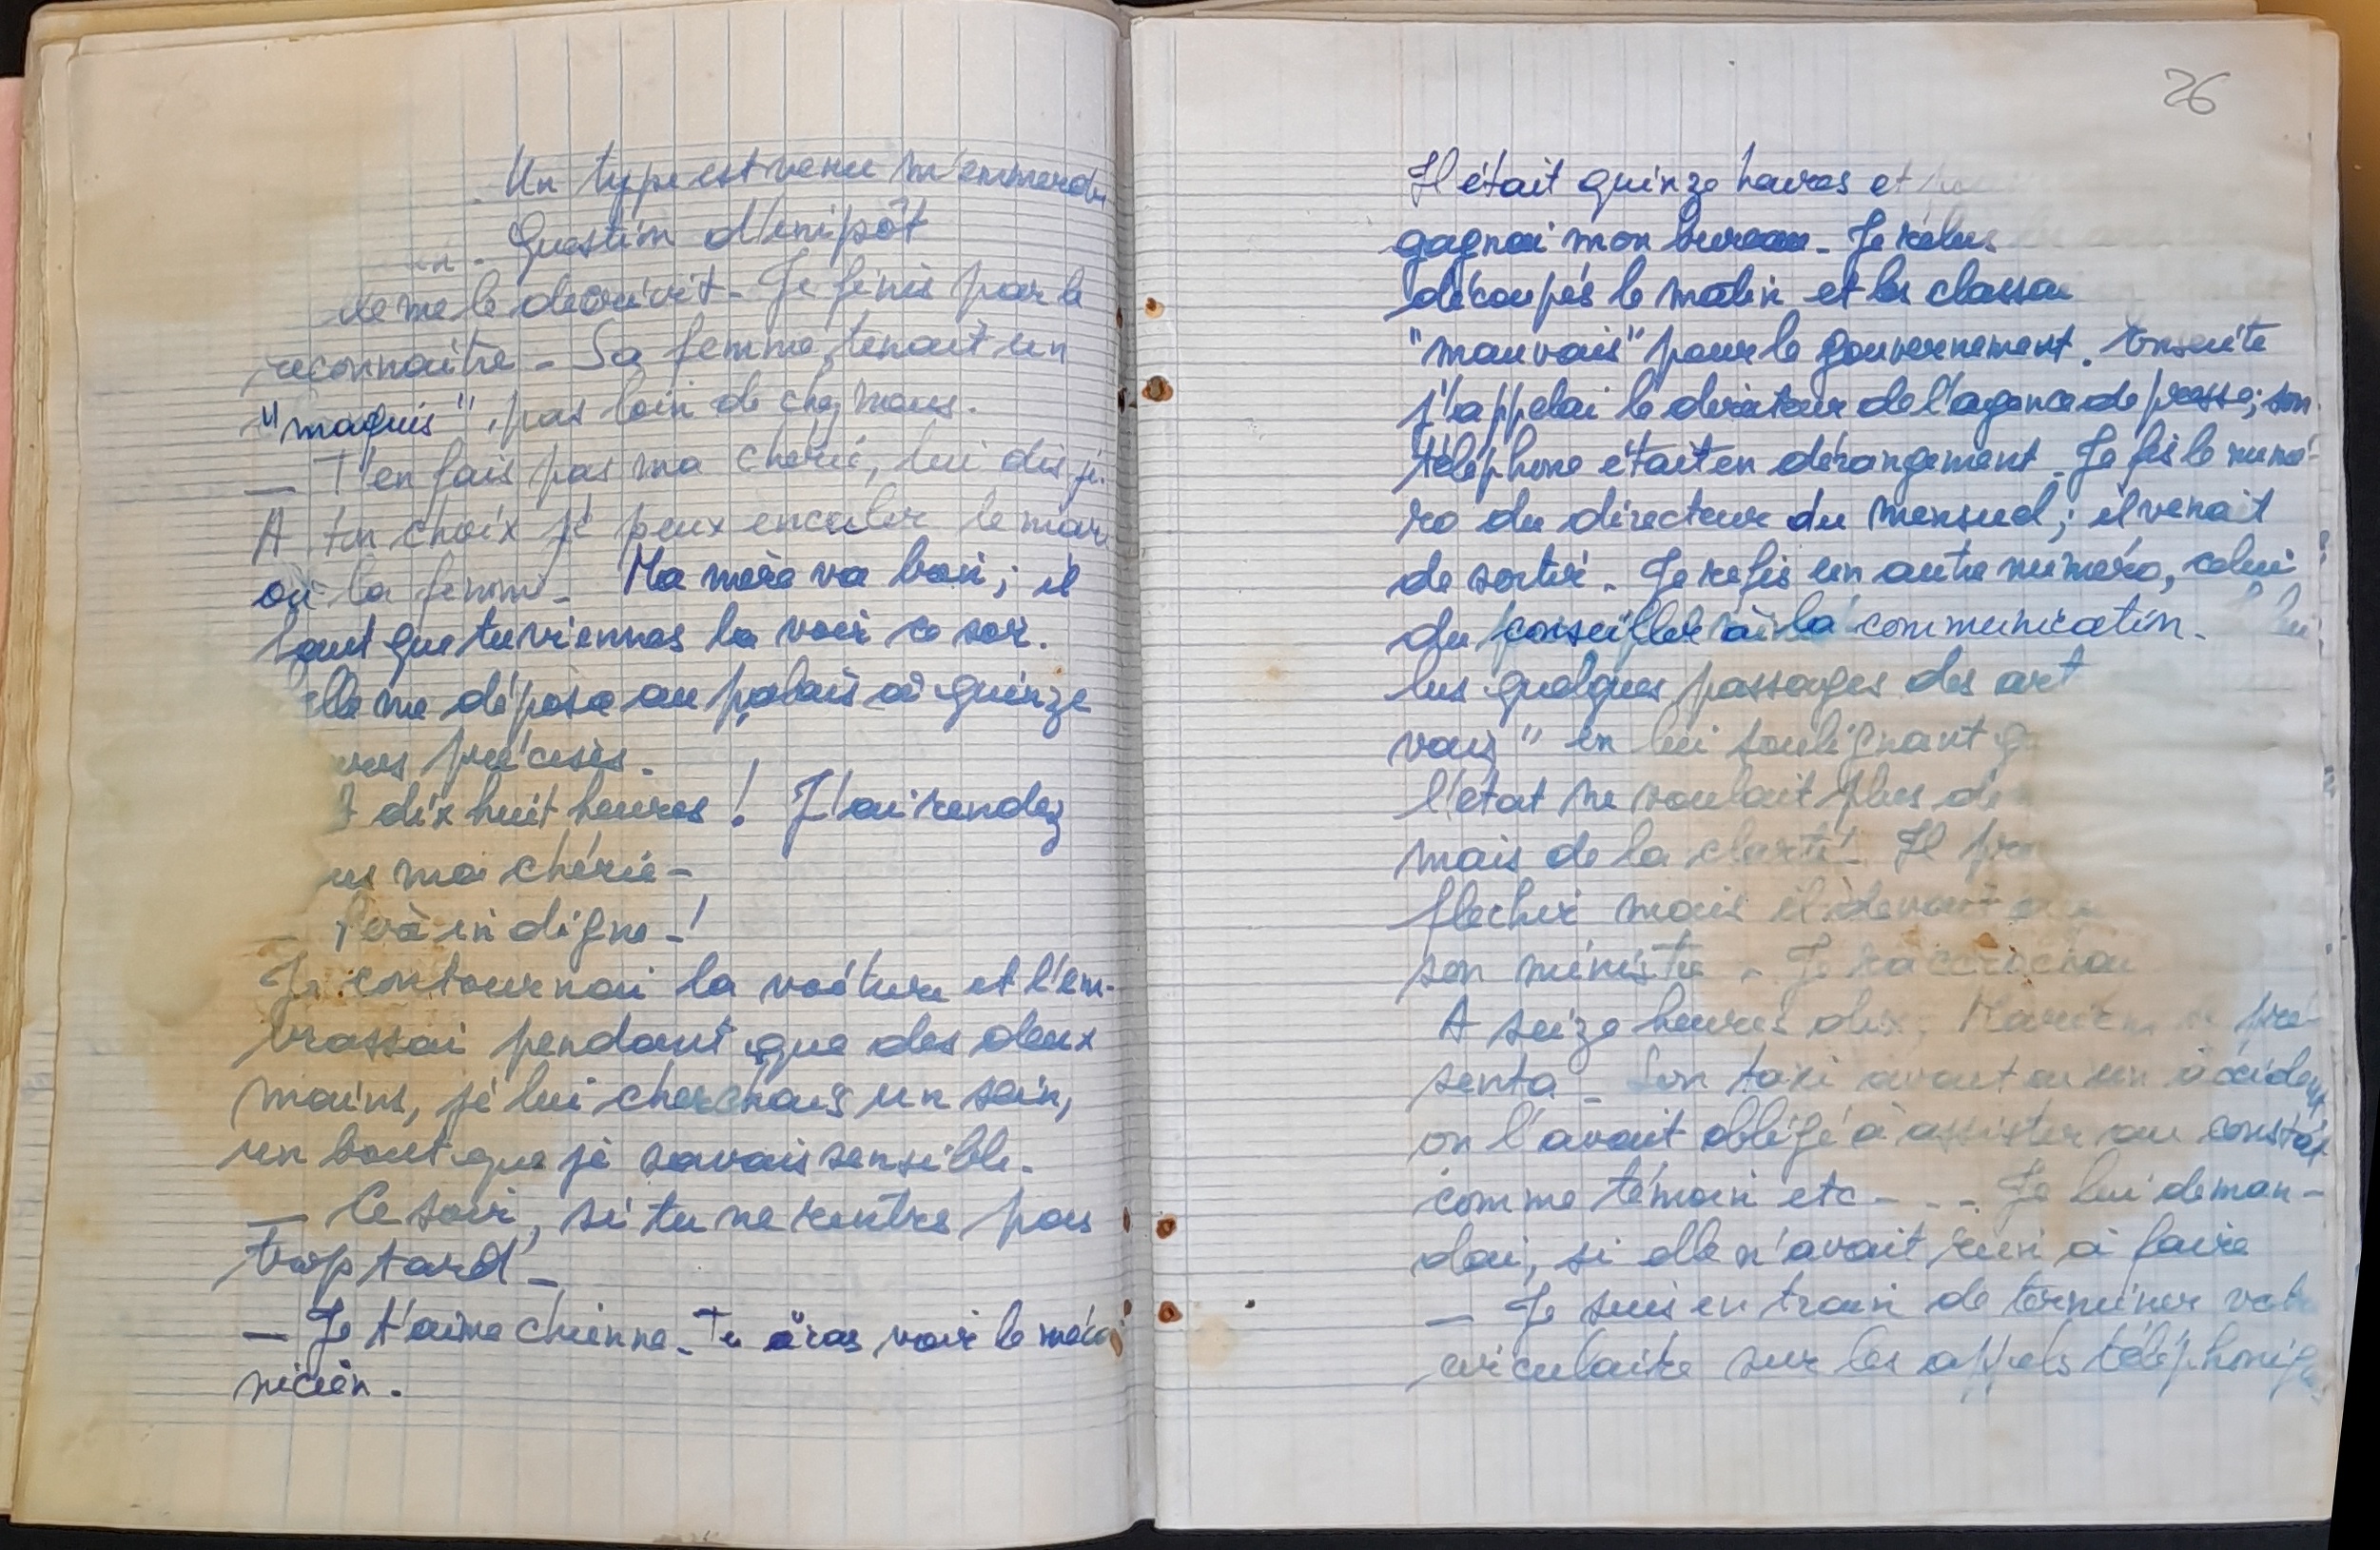 Un type est venu m'emmerder
Question d'impôt
me le décrivit - Je finis par le
reconnaître - Sa femme, tenait un
"maquis", pas loin de chez nous.
— T'en fais pas ma chérie, lui dis je.
A ton choix je peux enculer le mari
où la femme - Ma mère va bien; il
faut que tu viennes la voir ce soir.
elle me déposa au palais à quinze
précises.
dix huit heures ! J'ai rendez
ma chérie -
indigne - !
Je contournai la voiture et l'em-
brassai pendant que des deux
mains, je lui cherchais un sein,
un bout que je savais sensible.
— Ce soir, si tu ne rentres pas
trop tard -
— Je t'aime chienne. Tu iras voir le méca
nicien.
26
Il était quinze heures et
gagnai mon bureau - Je relus
découpés le matin et les classai
"mauvais" pour le gouvernement. Ensuite
j'appelai le directeur de l'agence de presse; son
téléphone était en dérangement. Je fis le numé-
ro du directeur du mensuel; il venait
de sortir. Je refis un autre numéro, celui
du conseiller à la communication.
lus quelques passages des art
vais" en lui soulignant
l'état ne voulait plus
mais de la clarté. Il
flechir mais il devait
son ministre - Je raccrochai
A seize heures dix, Mariem se pré-
senta - Son taxi avait eu un accident
on l'avait obligé à assister au constat
comme témoin etc - - - Je lui deman-
dai, si elle n'avait rien à faire
— Je suis en train de terminer votre
circulaire sur les appels téléphoniq